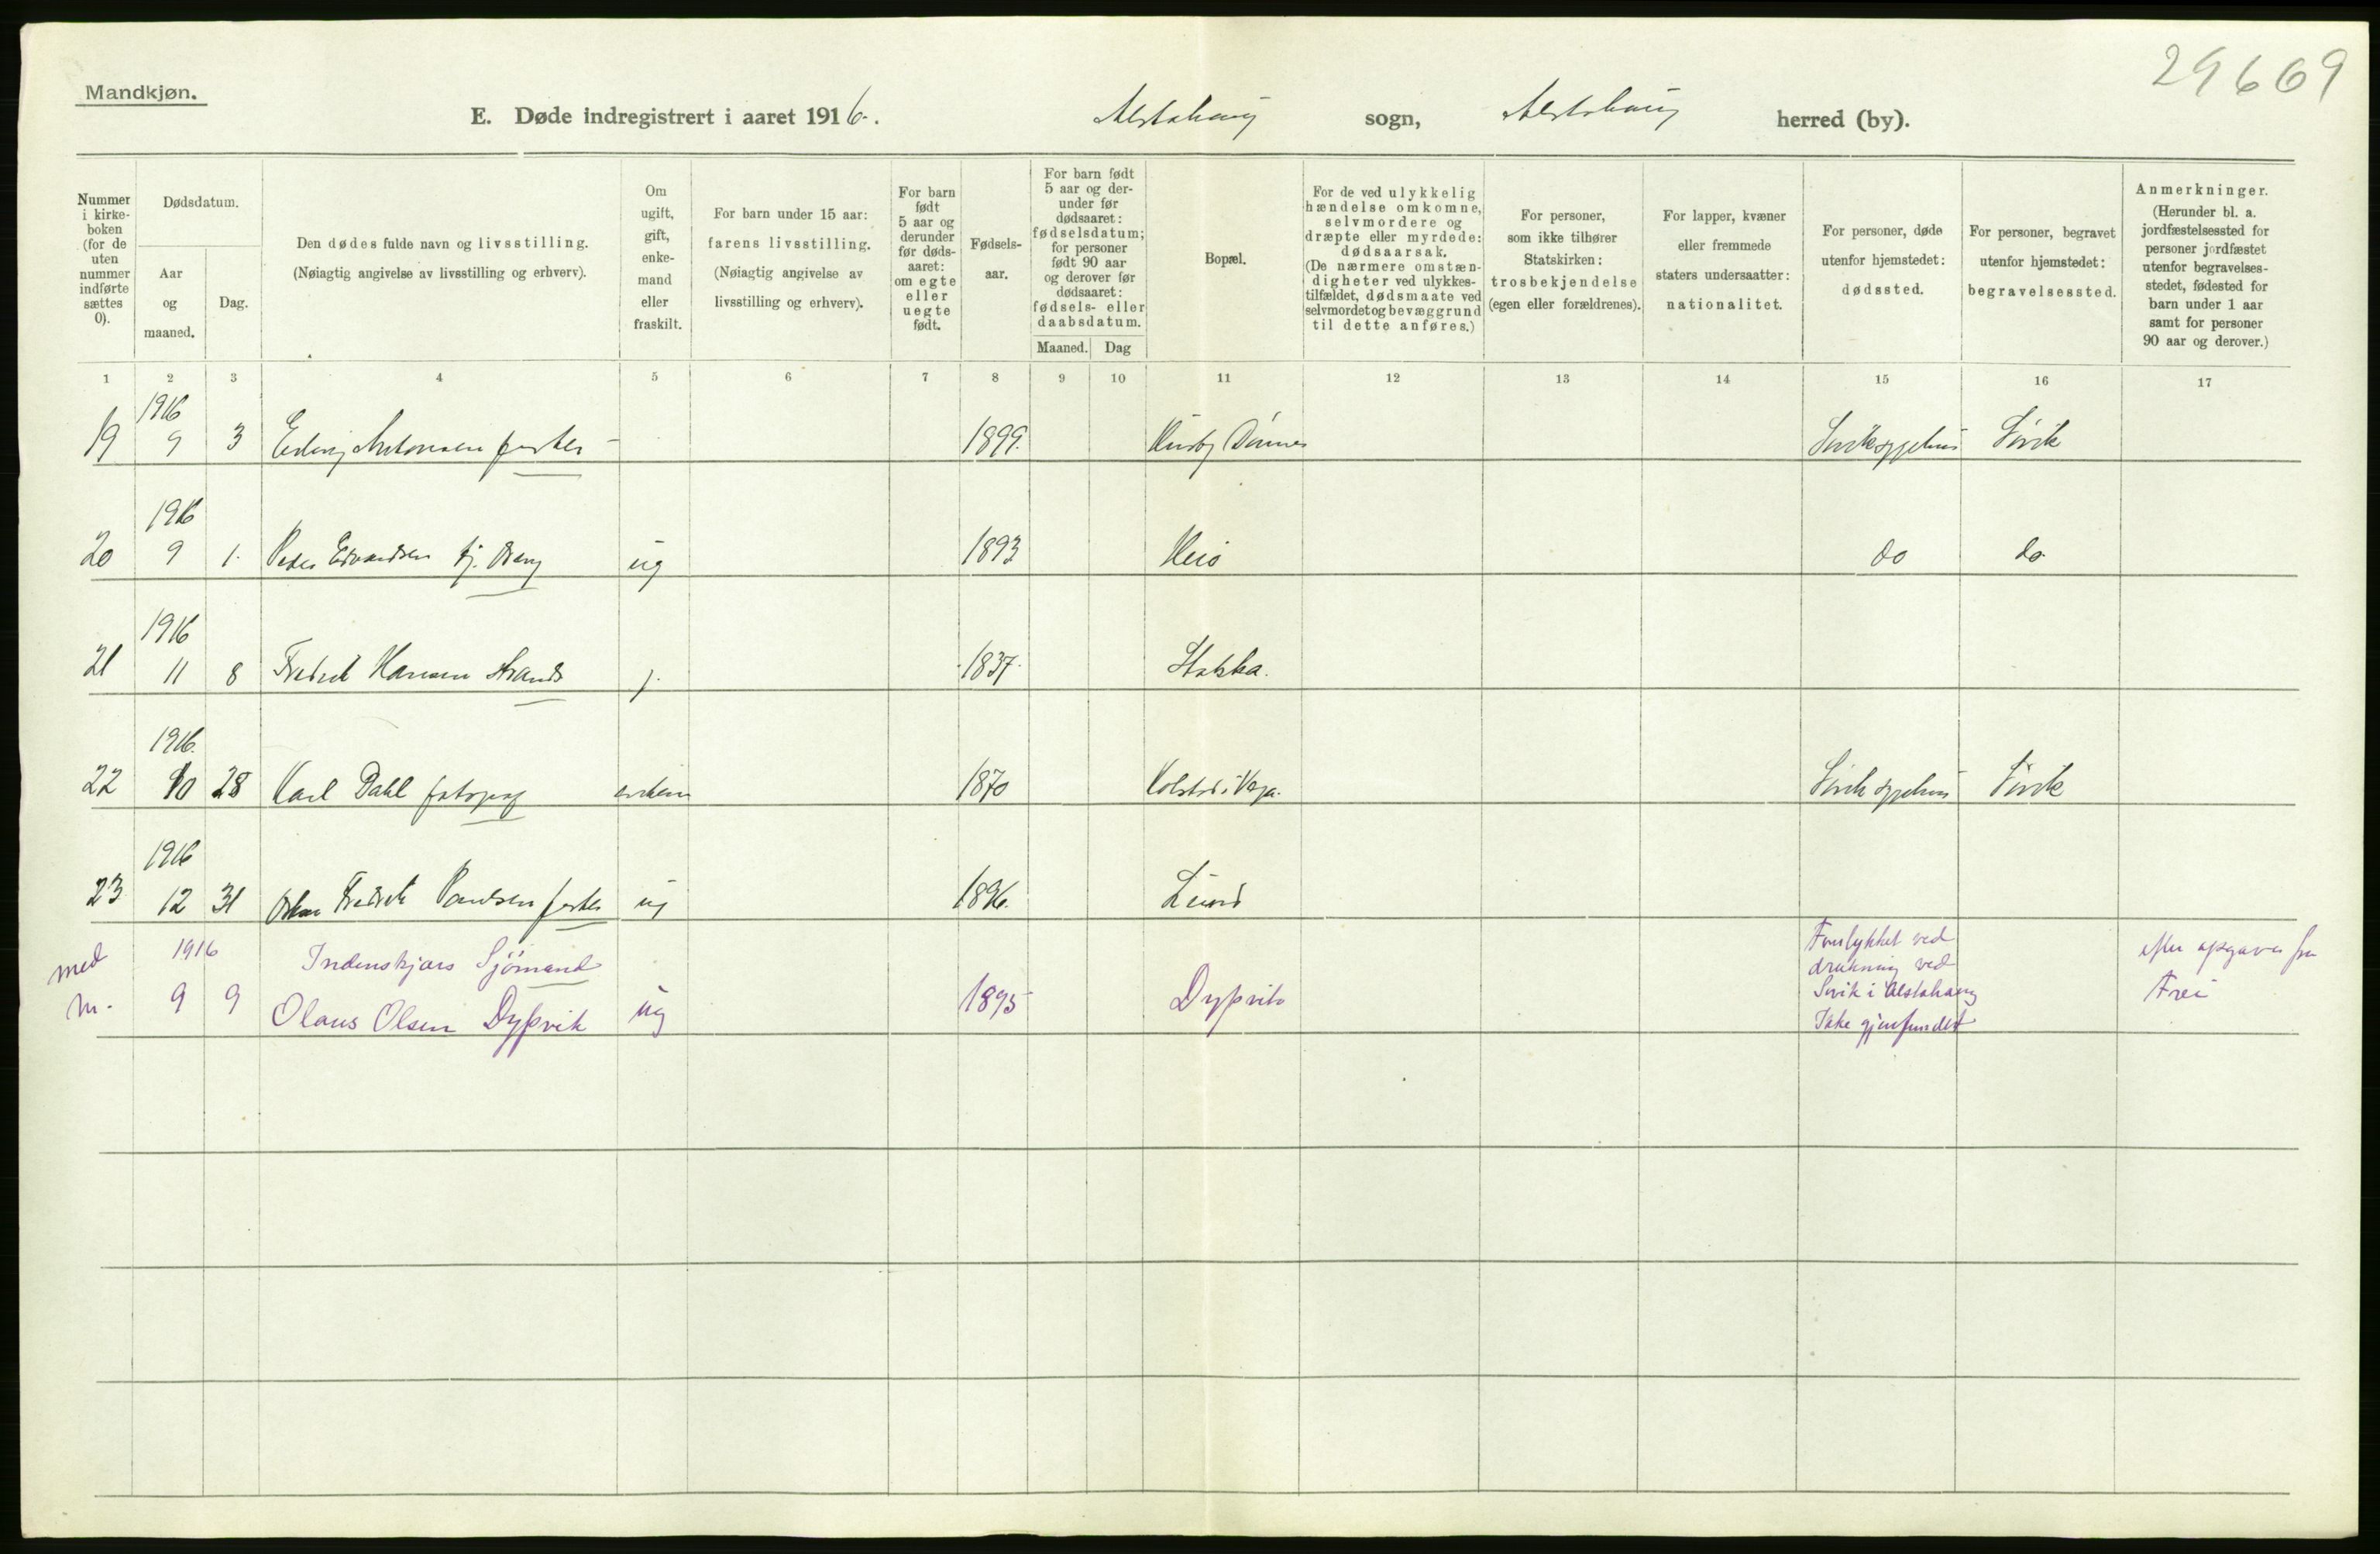 29669
Mandkjøn.
E. Døde indregistrert i aaret 1916. Alstahaug sogn, Alstahaug herred (by).
Nummer i kirke-boken (for de uten nummer indførte sættes 0).
Dødsdatum.
Aar og maaned.
Dag.
Den dødes fulde navn og livsstilling.
(Nøiagtig angivelse av livsstilling og erhverv).
Om ugift, gift, enke-mand eller fraskilt.
For barn under 15 aar: farens livsstilling.
(Nøiagtig angivelse av livsstilling og erhverv).
For barn født 5 aar og derunder før døds-aaret: om egte eller uegte født.
Fødsels-aar.
For barn født 5 aar og der-under før dødsaaret: fødselsdatum; for personer født 90 aar og derover før dødsaaret: fødsels- eller daabsdatum.
Maaned. Dag
Bopæl.
For de ved ulykkelig hændelse omkomne, selvmordere og dræpte eller myrdede: dødsaarsak.
(De nærmere omstæn-digheter ved ulykkes-tilfældet, dødsmaate ved selvmordet og bevæggrund til dette anføres.)
For personer, som ikke tilhører Statskirken: trosbekjendelse (egen eller forældrenes).
For lapper, kvæner eller fremmede staters undersaatter: nationalitet.
For personer, døde utenfor hjemstedet: dødssted.
For personer, begravet utenfor hjemstedet: begravelsessted.
Anmerkninger.
(Herunder bl. a. jordfæstelsessted for personer jordfæstet utenfor begravelses-stedet, fødested for barn under 1 aar samt for personer 90 aar og derover.)
1 2 3 4 5 6 7 8 9 10 11 12 13 14 15 16 17
1916
19 9 3 Erling Antonsen fisker - 1899. Husby Dønnes Søvik sygehus Søvik
1916
20 9 1. Peder Edvardsen ug 1893 Herö do do
1916
21 11 8 Fredrik Hansen Strands g. 1837. Stokka.
1916.
22 10 28 Karl Dahl fotograf enkem 1870 i Vega. Søvik sygehus Søvik
1916
23 12 31 Oskar Fredrik Paulsen fisker ug 1896. Lund
med m. 1916
9 9 Indenskjærs Sjömand
Olaus Olsen Dypvik ug 1895 Dypvik
Forulykket ved
drukning ved
Søvik i Alstahaug
Ikke gjenfundet
efter opgave fra
Frei